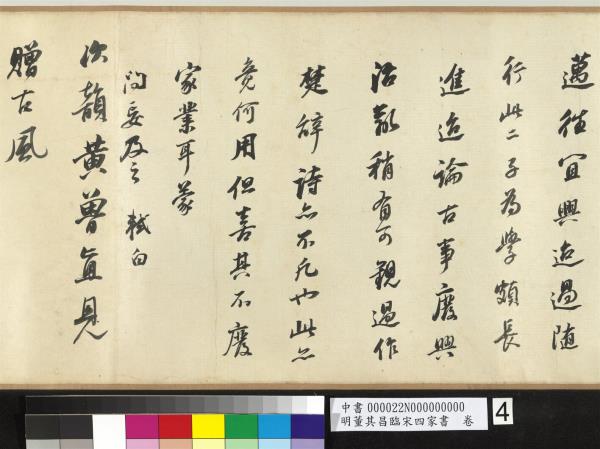 邁往宜興迨過隨
行此二子為學頗長
進迨論古事廢興
治亂稍有可觀過作
楚辭詩亦不凡也此亦
竟何用但喜其不廢
家業耳蒙
問妄及之 軾白
次韻黃魯直見
贈古風
中書 000022N000000000
明董其昌臨宋四家書 卷
4